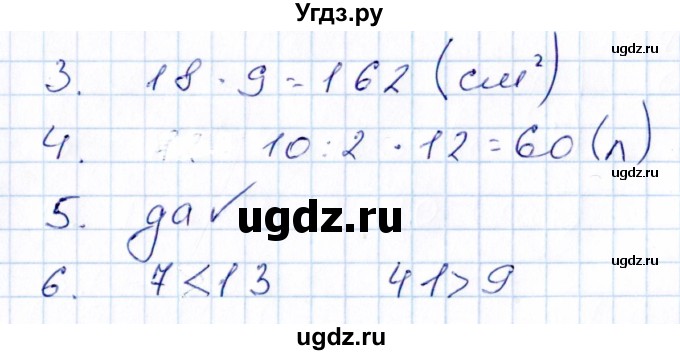 Угдз.ру
ugdz.ru
3. 18 · 9 = 162 (см²)
ugdz.ru
4. 10 : 2 · 12 = 60 (л)
ugdz.ru
5. да ✓
ugdz.ru
ugdz.ru
6. 7 < 13 41 > 9
ugdz.ru